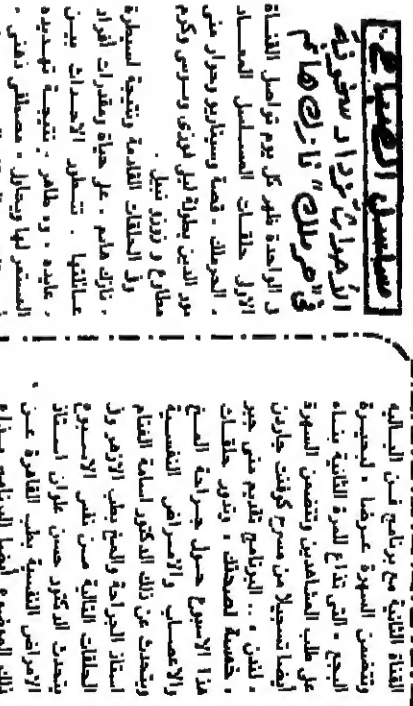 مسلسل الصباح:
الأحداث تزداد سخونة
فى "حرملك" نازك هانم
فى الواحدة ظهر كل يوم تواصل القناة
الأولى حلقات المسلسل المعاد
، الحرملك ، قصة وسيناريو وحوار منى
نور الدين بطولة ليلى فوزى وسوسن وكرم
مطاوع و زوزو نبيل .
وفى الحلقات القادمة ونتيجة لسيطرة
، نازك هانم ، على حياة ومقدرات أفراد
عائلتها .. تتطور الأحداث بين
، عايده ، و، طاهر ، نتيجة تهديده
المستمر لها ويحاول ، مصطفى فهمى ،
القناة الثانية مع برنامج فن الباليه
وتتضمن السهرة عرضا ، لبحيرة
البجع ، التى تذاع للمرة الثانية بناء
على طلب المشاهدين وتتضمن السهرة
أيضا تسجيلا من مسرح كوفنت جاردن
، لندن ، .. البرنامج تقديم منى جبر
، خمسة لصحتك ، وتدور حلقات
هذا الاسبوع حول جراحة المخ
والاعصاب والامراض النفسية
ويتحدث عن ذلك الدكتور أسامة الغنام
أستاذ الجراحة والمخ بطب الازهر وفى
الحلقات التالية من نفس الاسبوع
يتحدث الدكتور حسن علوان أستاذ
الامراض النفسية بطب القاهرة عن
ذلك الموضوع أيضا البرنامج يذاع